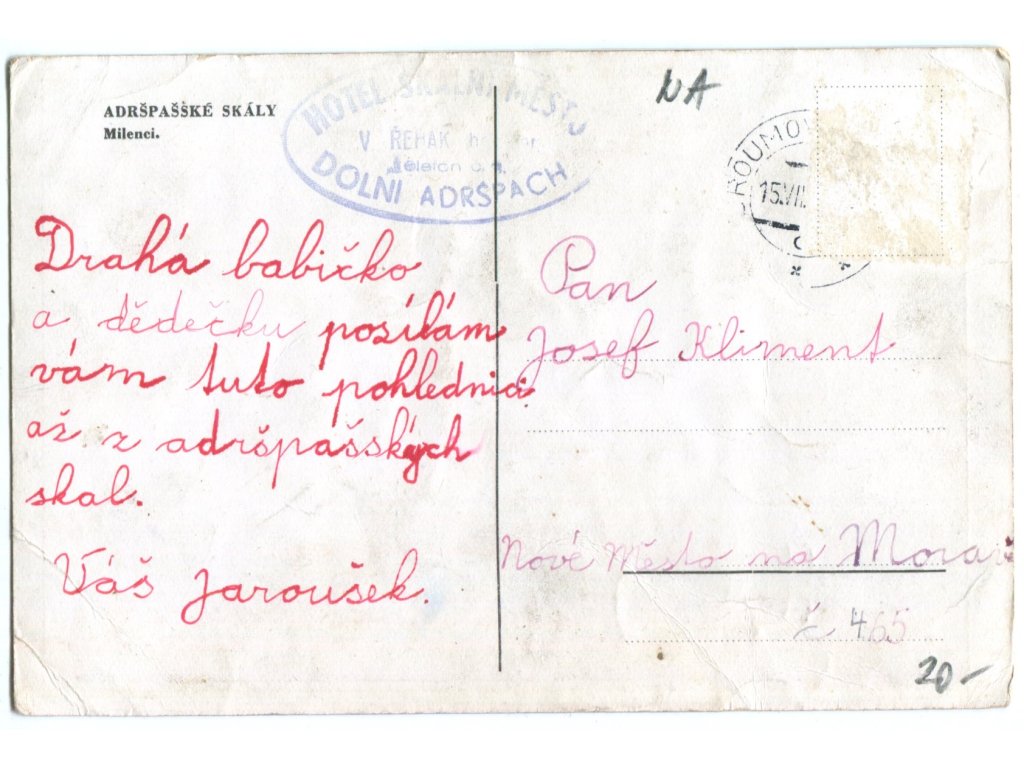 ADRŠPAŠSKÉ SKÁLY
Milenci.
HOTEL SKALNÍ MĚSTO
V ŘEHÁK
DOLNÍ ADRŠPACH
NA
ROUMOV
15.VII.
Drahá babičko
a dědečku posílám
vám tuto pohlednici
až z adršpašských
skal.
Váš Jaroušek.
Pan
Josef Kliment
Nové Město na Moravě
č 465
20-